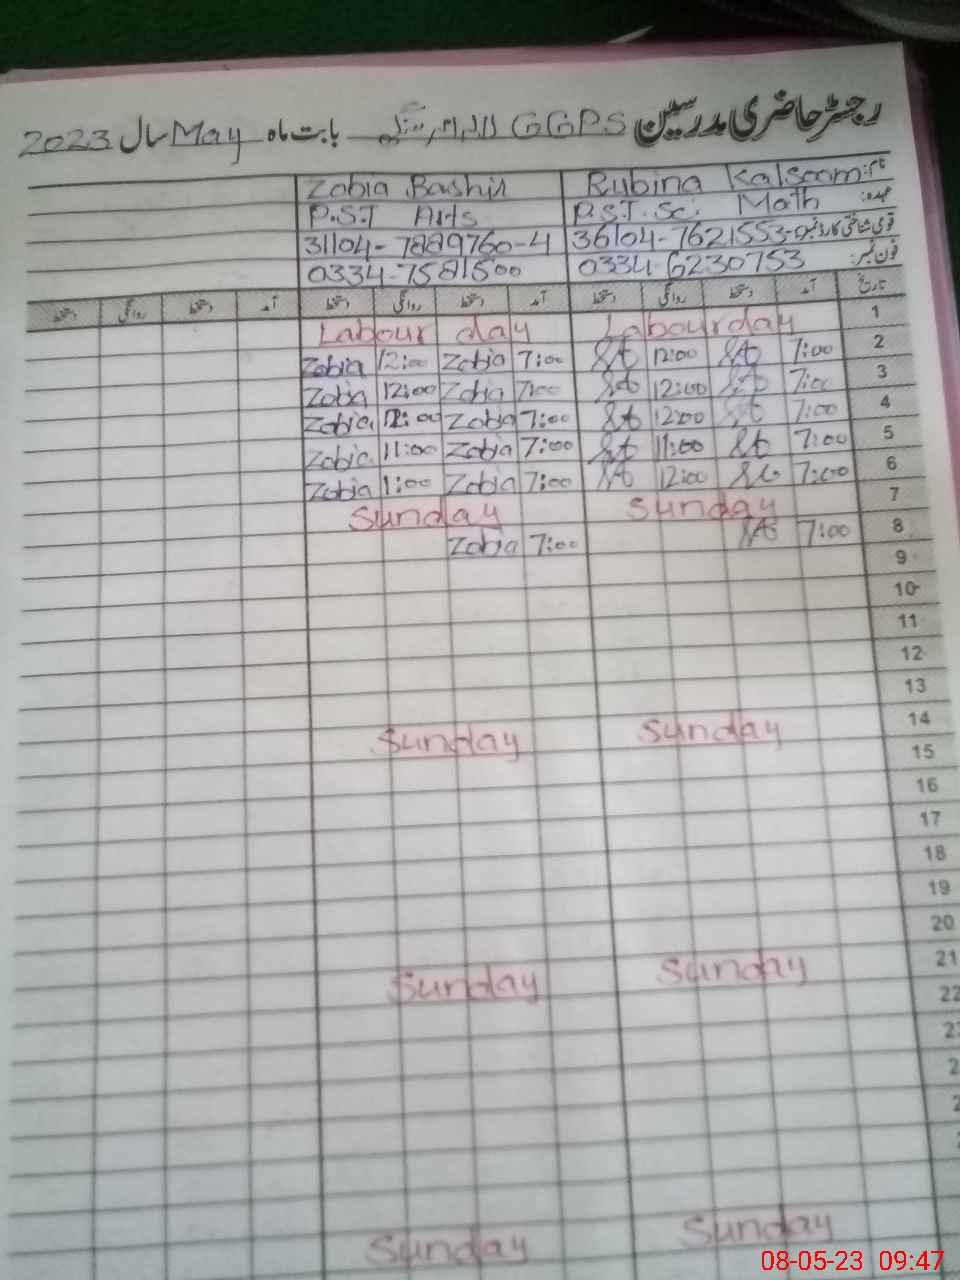 رجسٹر حاضری مدرسین GGPS بابت ماہ May سال 2023
نام: Rubina Kalsoom Zobia Bashir
عہدہ: P.S.T. Sc. Math P.S.T Arts
قومی شناختی کارڈ نمبر 36104-7621553- 31104-7889760-4
فون نمبر: 0334-6230753 0334-7581500
تاریخ آمد دستخط روانگی دستخط آمد دستخط روانگی دستخط آمد دستخط روانگی دستخط
1 Labour day Labour day
2 7:00 12:00 7:00 Zobia 12:00 Zobia
3 7:00 12:00 7:00 Zobia 12:00 Zobia
4 7:00 12:00 7:00 Zobia 12:00 Zobia
5 7:00 11:00 7:00 Zobia 11:00 Zobia
6 7:00 12:00 7:00 Zobia 1:00 Zobia
7 Sunday Sunday
8 7:00 7:00 Zobia
9
10
11
12
13
14 Sunday Sunday
15
16
17
18
19
20
21 Sunday Sunday
22
Sunday Sunday
08-05-23 09:47